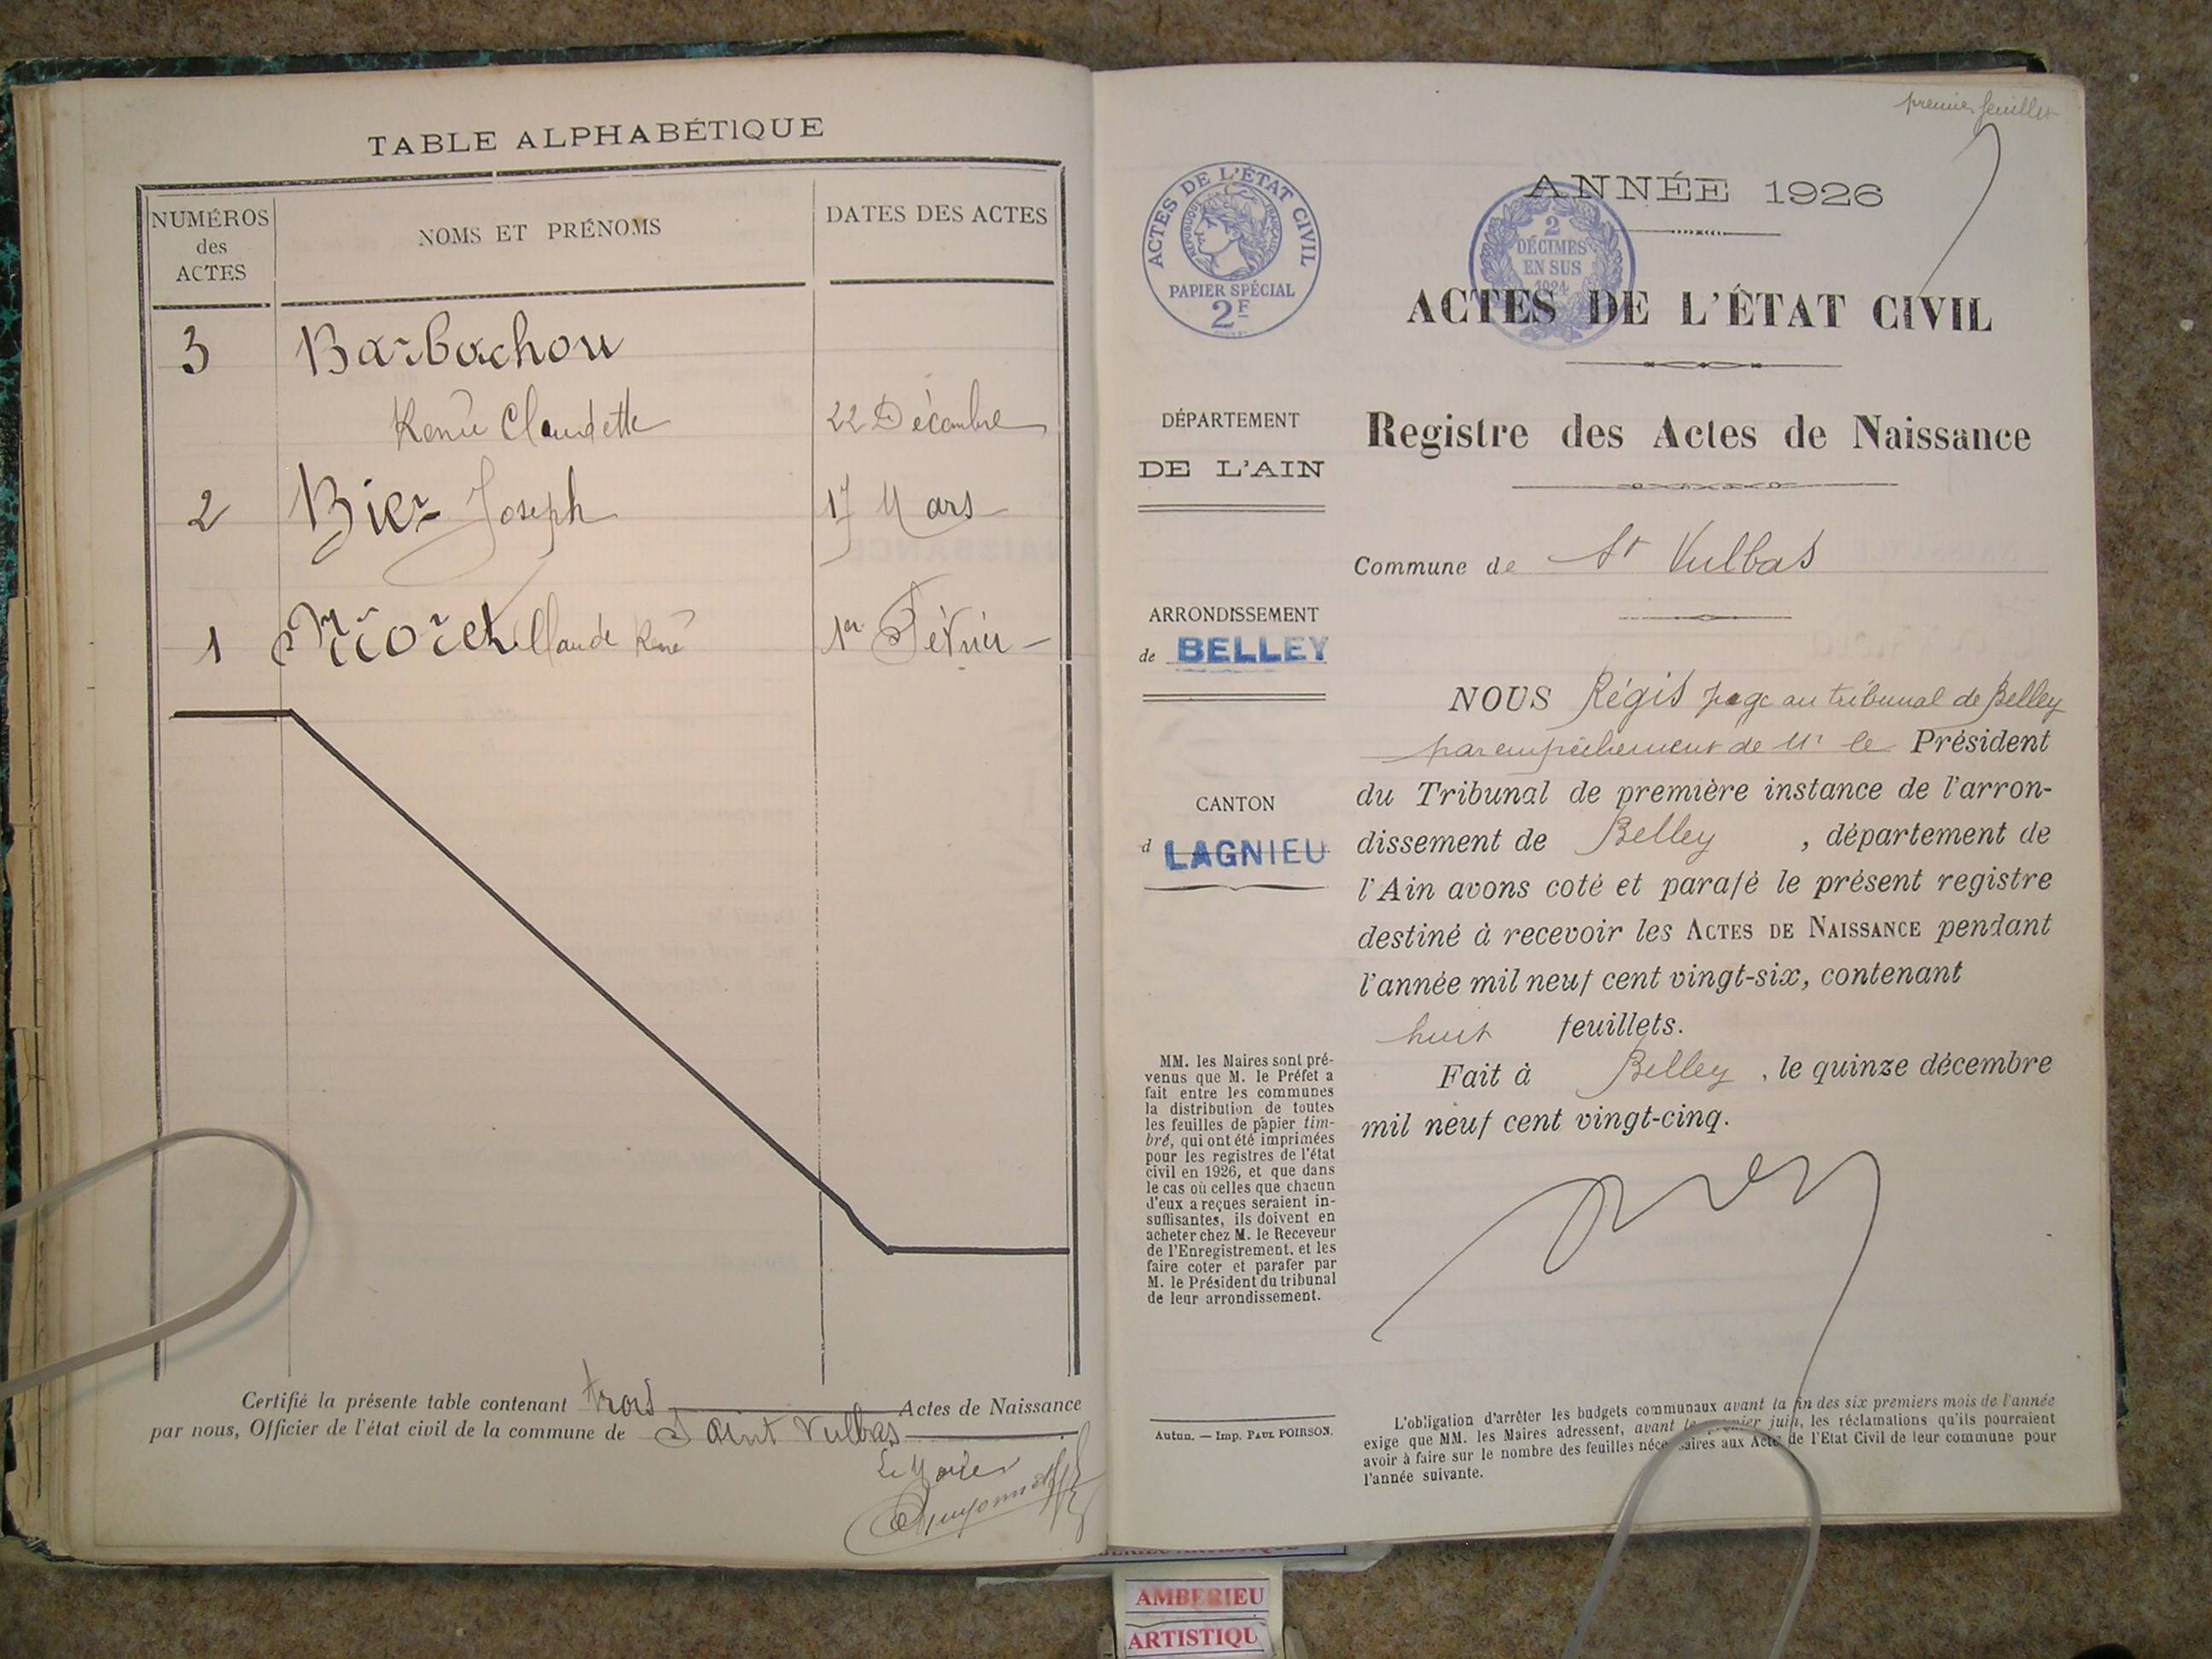 TABLE ALPHABÉTIQUE
NUMÉROS
des
ACTES
NOMS ET PRÉNOMS
DATES DES ACTES
3 Barbachou
Renée Claudette 22 Décembre
2 Biez Joseph 17 Mars
1 Morel Claude René 1er Février
Certifié la présente table contenant trois Actes de Naissance
par nous, Officier de l'état civil de la commune de Saint Vulbas
Le Maire
premier feuillet
ACTES DE L'ÉTAT CIVIL
RÉPUBLIQUE FRANÇAISE
PAPIER SPÉCIAL
2F
2
DÉCIMES
EN SUS
1924
ANNÉE 1926
ACTES DE L'ÉTAT CIVIL
Registre des Actes de Naissance
DÉPARTEMENT
DE L'AIN
Commune de St Vulbas
ARRONDISSEMENT
de BELLEY
CANTON
d LAGNIEU
NOUS Régis juge au tribunal de Belley
par empêchement de Mr le Président
du Tribunal de première instance de l'arron-
dissement de Belley, département de
l'Ain avons coté et parafé le présent registre
destiné à recevoir les ACTES DE NAISSANCE pendant
l'année mil neuf cent vingt-six, contenant
huit feuillets.
Fait à Belley, le quinze décembre
mil neuf cent vingt-cinq.
MM. les Maires sont pré-
venus que M. le Préfet a
fait entre les communes
la distribution de toutes
les feuilles de papier tim-
bré, qui ont été imprimées
pour les registres de l'état
civil en 1926, et que dans
le cas où celles que chacun
d'eux a reçues seraient in-
suffisantes, ils doivent en
acheter chez M. le Receveur
de l'Enregistrement, et les
faire coter et parafer par
M. le Président du tribunal
de leur arrondissement.
Autun. — Imp. PAUL POIRSON.
L'obligation d'arrêter les budgets communaux avant la fin des six premiers mois de l'année
exige que MM. les Maires adressent, avant le premier juin, les réclamations qu'ils pourraient
avoir à faire sur le nombre des feuilles nécessaires aux Actes de l'Etat Civil de leur commune pour
l'année suivante.
AMBERIEU
ARTISTIQU